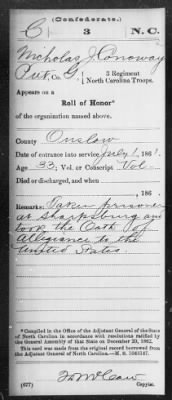 (Confederate.)
C 3 N. C.
Nicholas J. Conoway
Pvt, Co. G, 3 Regiment
North Carolina Troops.
Appears on a
Roll of Honor*
of the organization named above.
County Onslow
Date of entrance into service July 1, 1861.
Age 33; Vol. or Conscript Vol.
Died or discharged, and when
, 186 .
Remarks: Taken prisoner
at Sharpsburg and
took the Oath of
Allegiance to the
United States.
*Compiled in the Office of the Adjutant General of the State
of North Carolina in accordance with resolutions ratified by
the General Assembly of that State on December 20, 1862.
This copy was made from the original record borrowed from the
Adjutant General of North Carolina.—M. S.
(677)
Copyist.